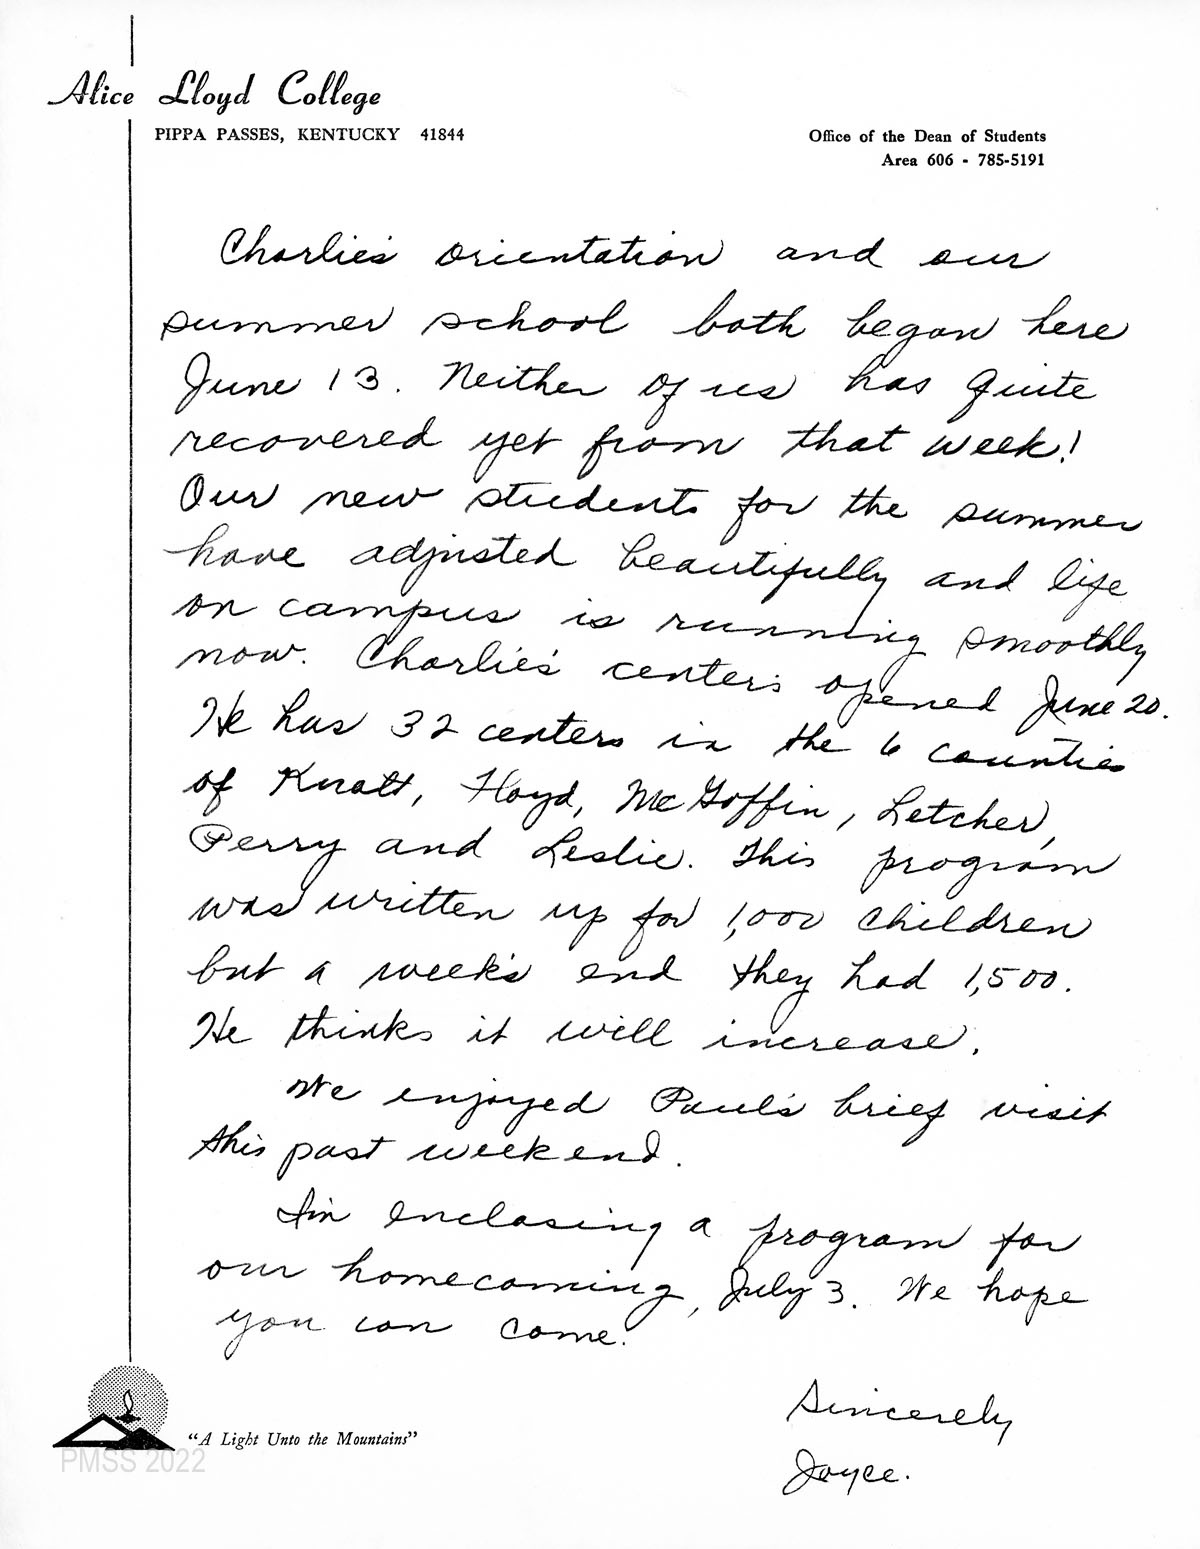 Alice Lloyd College
PIPPA PASSES, KENTUCKY 41844
Office of the Dean of Students
Area 606 - 785-5191
Charlie's orientation and our
summer school both began here
June 13. Neither of us has quite
recovered yet from that week!
Our new students for the summer
have adjusted beautifully and life
on campus is running smoothly
now. Charlie's centers opened June 20.
He has 32 centers in the 6 counties
of Knott, Floyd, McGoffin, Letcher,
Perry and Leslie. This program
was written up for 1,000 children
but a week's end they had 1,500.
He thinks it will increase.
We enjoyed Paul's brief visit
this past week end.
I'm enclosing a program for
our homecoming, July 3. We hope
you can come.
Sincerely
Joyce.
"A Light Unto the Mountains"
PMSS 2022